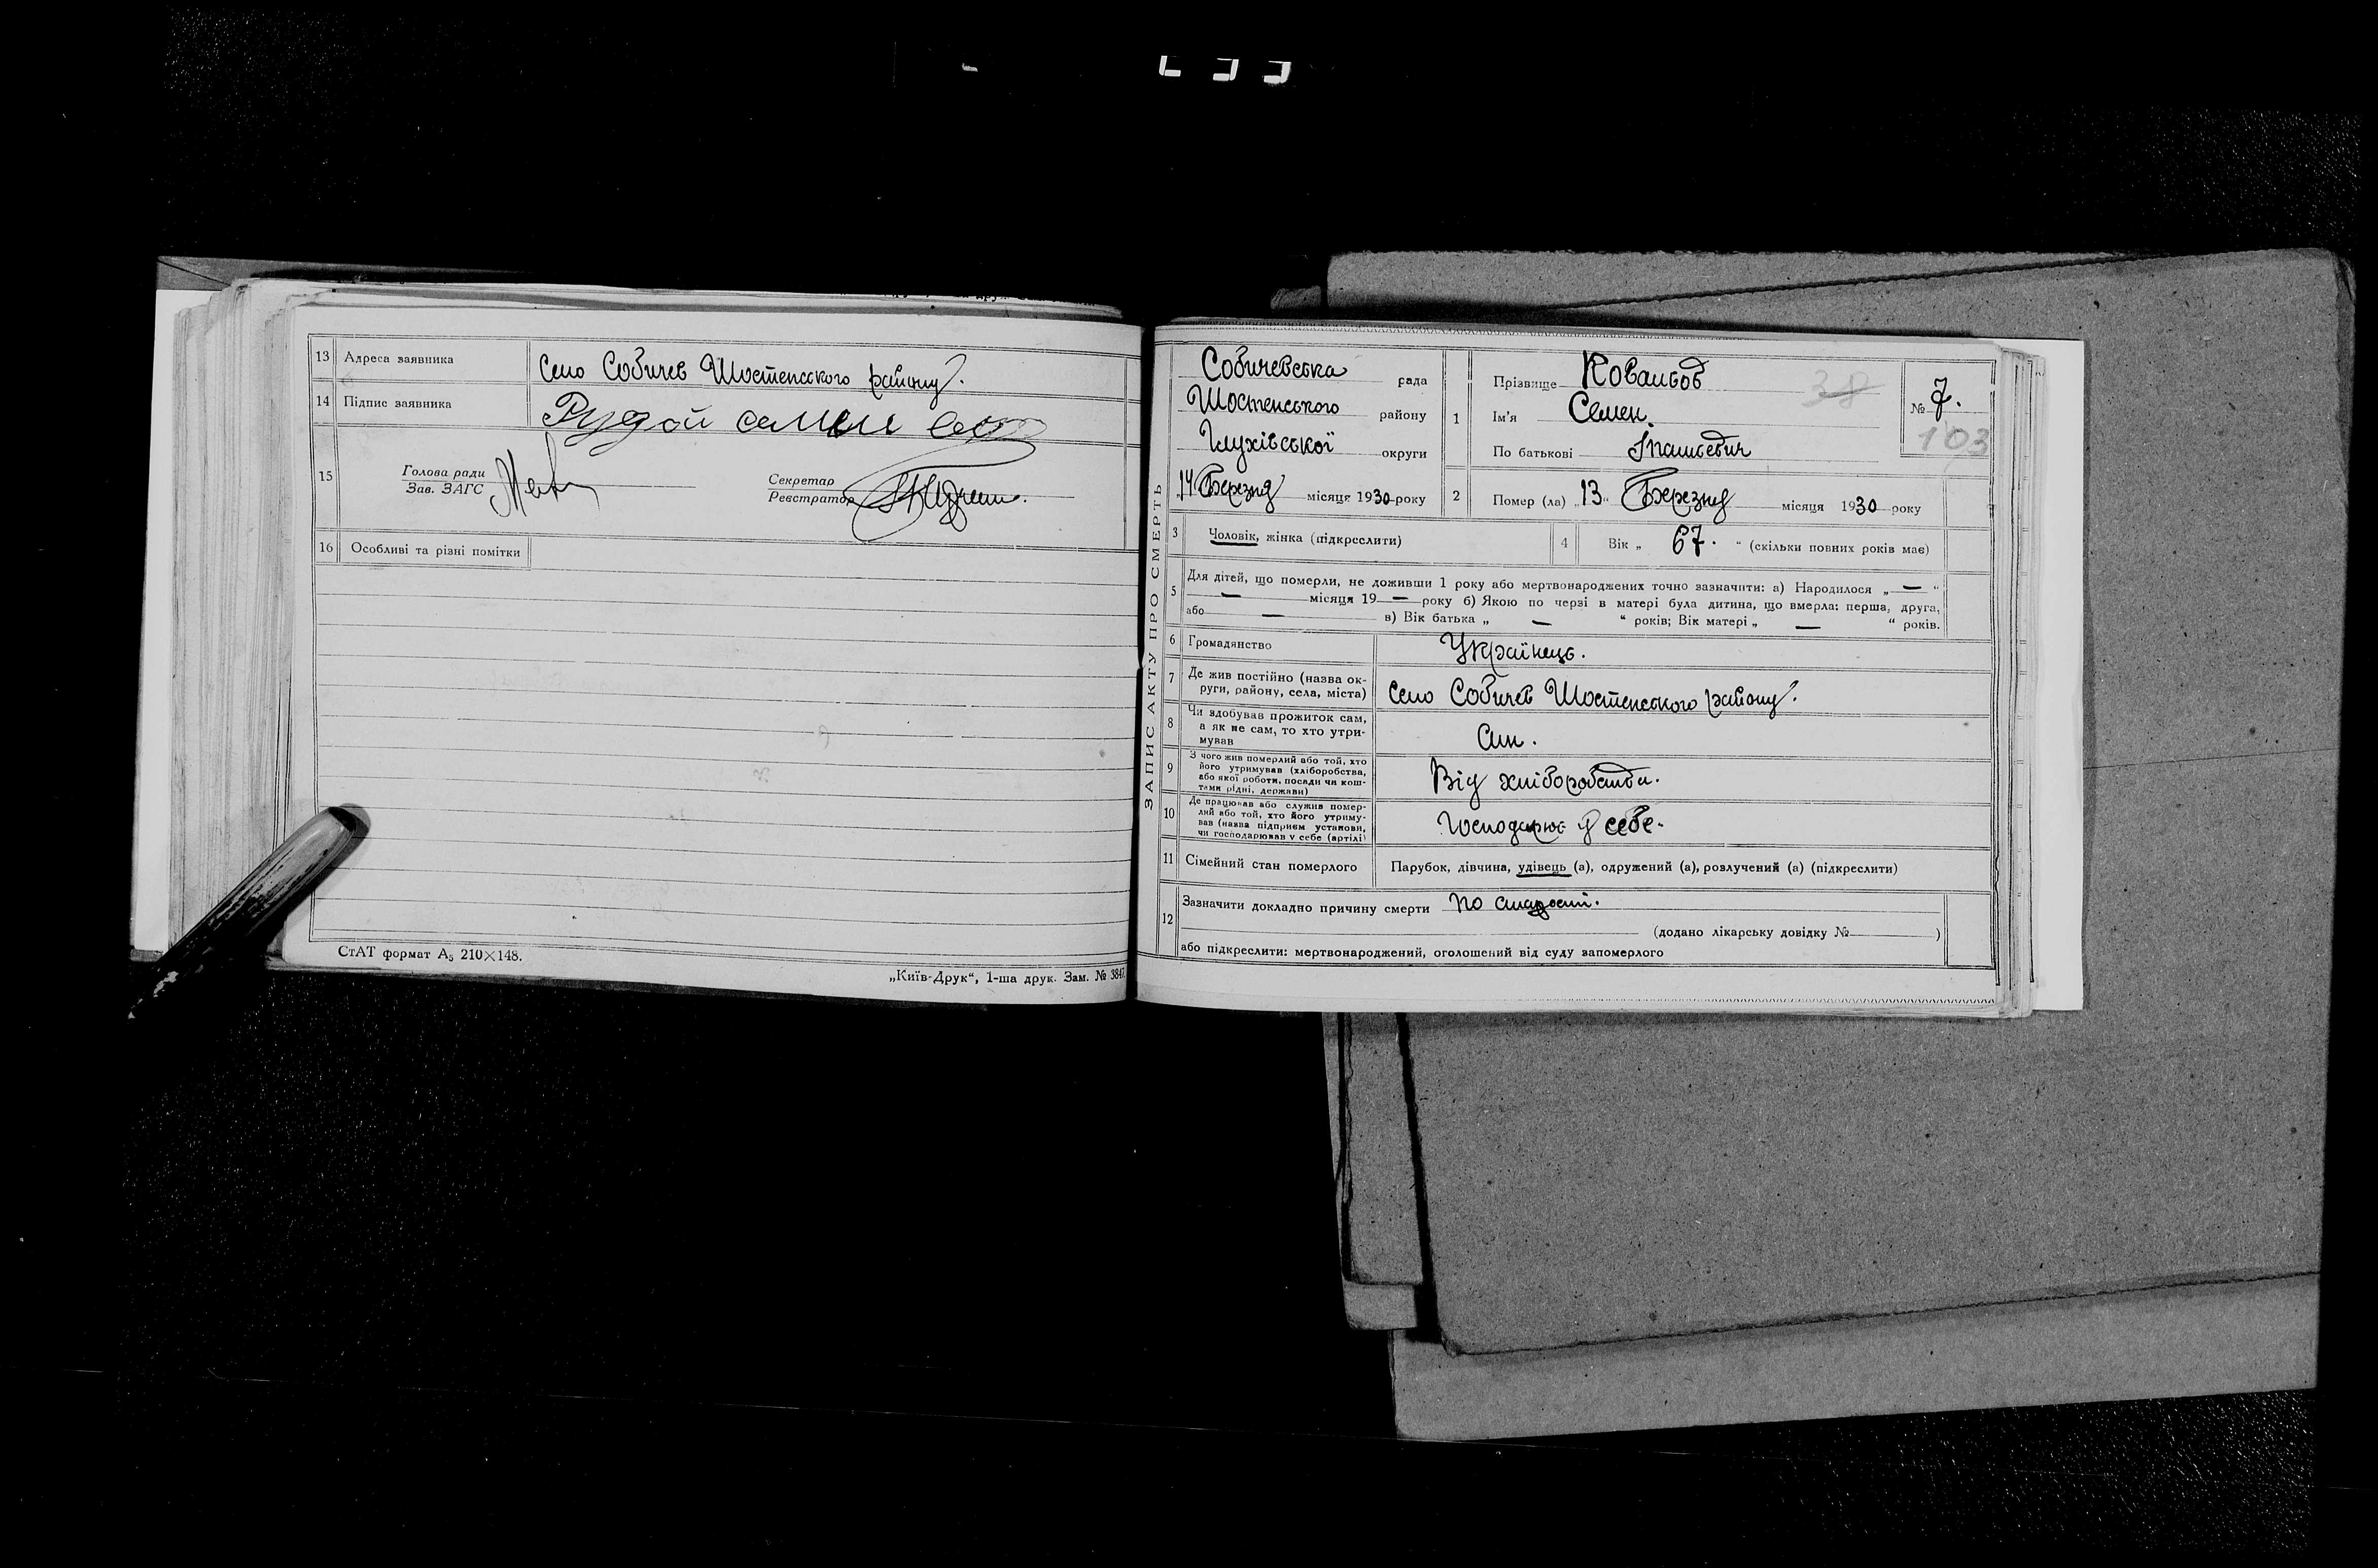 13 Адреса заявника Село Собичев Шостенського району.
14 Підпис заявника Рудой семен
15 Голова ради
Зав. ЗАГС
Секретар
Реєстратор
16 Особливі та різні помітки
СтАТ формат А₅ 210×148.
„Київ-Друк“, 1-ша друк. Зам. № 3847.
ЗАПИС АКТУ ПРО СМЕРТЬ
Собичевська рада
Шостенського району
Глухівської округи
14 Березня місяця 1930 року
1 Прізвище Ковальов
38
Ім'я Семен.
По батькові
№ 7.
103
2 Помер (ла) „13“ Березня місяця 1930 року
3 Чоловік, жінка (підкреслити)
4 Вік „ 67. “ (скільки повних років має)
5 Для дітей, що померли, не доживши 1 року або мертвонароджених точно зазначити: а) Народилося „ — “
— місяця 19 — року б) Якою по черзі в матері була дитина, що вмерла: перша, друга,
або — в) Вік батька „ — “ років; Вік матері „ — “ років.
6 Громадянство Українець.
7 Де жив постійно (назва ок-
руги, району, села, міста) Село Собичев Шостенського району.
8 Чи здобував прожиток сам,
а як не сам, то хто утри-
мував
9 З чого жив померлий або той, хто
його утримував (хліборобства,
або якої роботи, посади чи кош-
тами рідні, держави) Від хліборобства.
10 Де працював або служив помер-
лий або той, хто його утриму-
вав (назва підприєм установи,
чи господарював у себе (артілі) Господарює у себе.
11 Сімейний стан померлого Парубок, дівчина, удівець (а), одружений (а), розлучений (а) (підкреслити)
12 Зазначити докладно причину смерти по старости.
(додано лікарську довідку № )
або підкреслити: мертвонароджений, оголошений від суду запомерлого